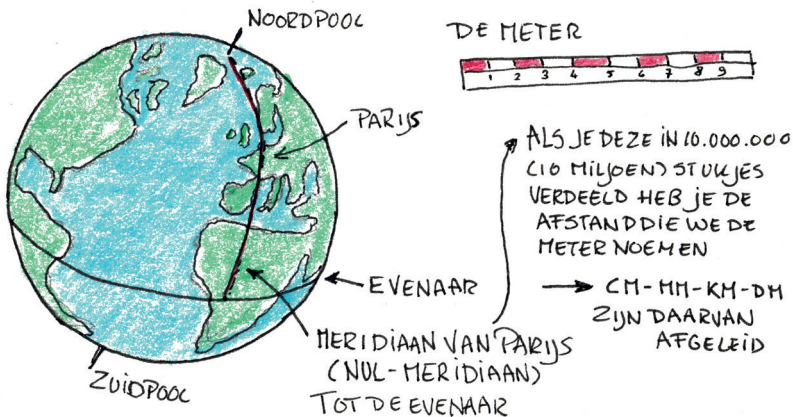 NOORDPOOL
DE METER
1 2 3 4 5 6 7 8 9
PARIJS
ALS JE DEZE IN 10.000.000
(10 MILJOEN) STUKJES
VERDEELD HEB JE DE
AFSTAND DIE WE DE
METER NOEMEN
EVENAAR
CM-MM-KM-DM
ZIJN DAARVAN
AFGELEID
MERIDIAAN VAN PARIJS
(NUL-MERIDIAAN)
TOT DE EVENAAR
ZUIDPOOL